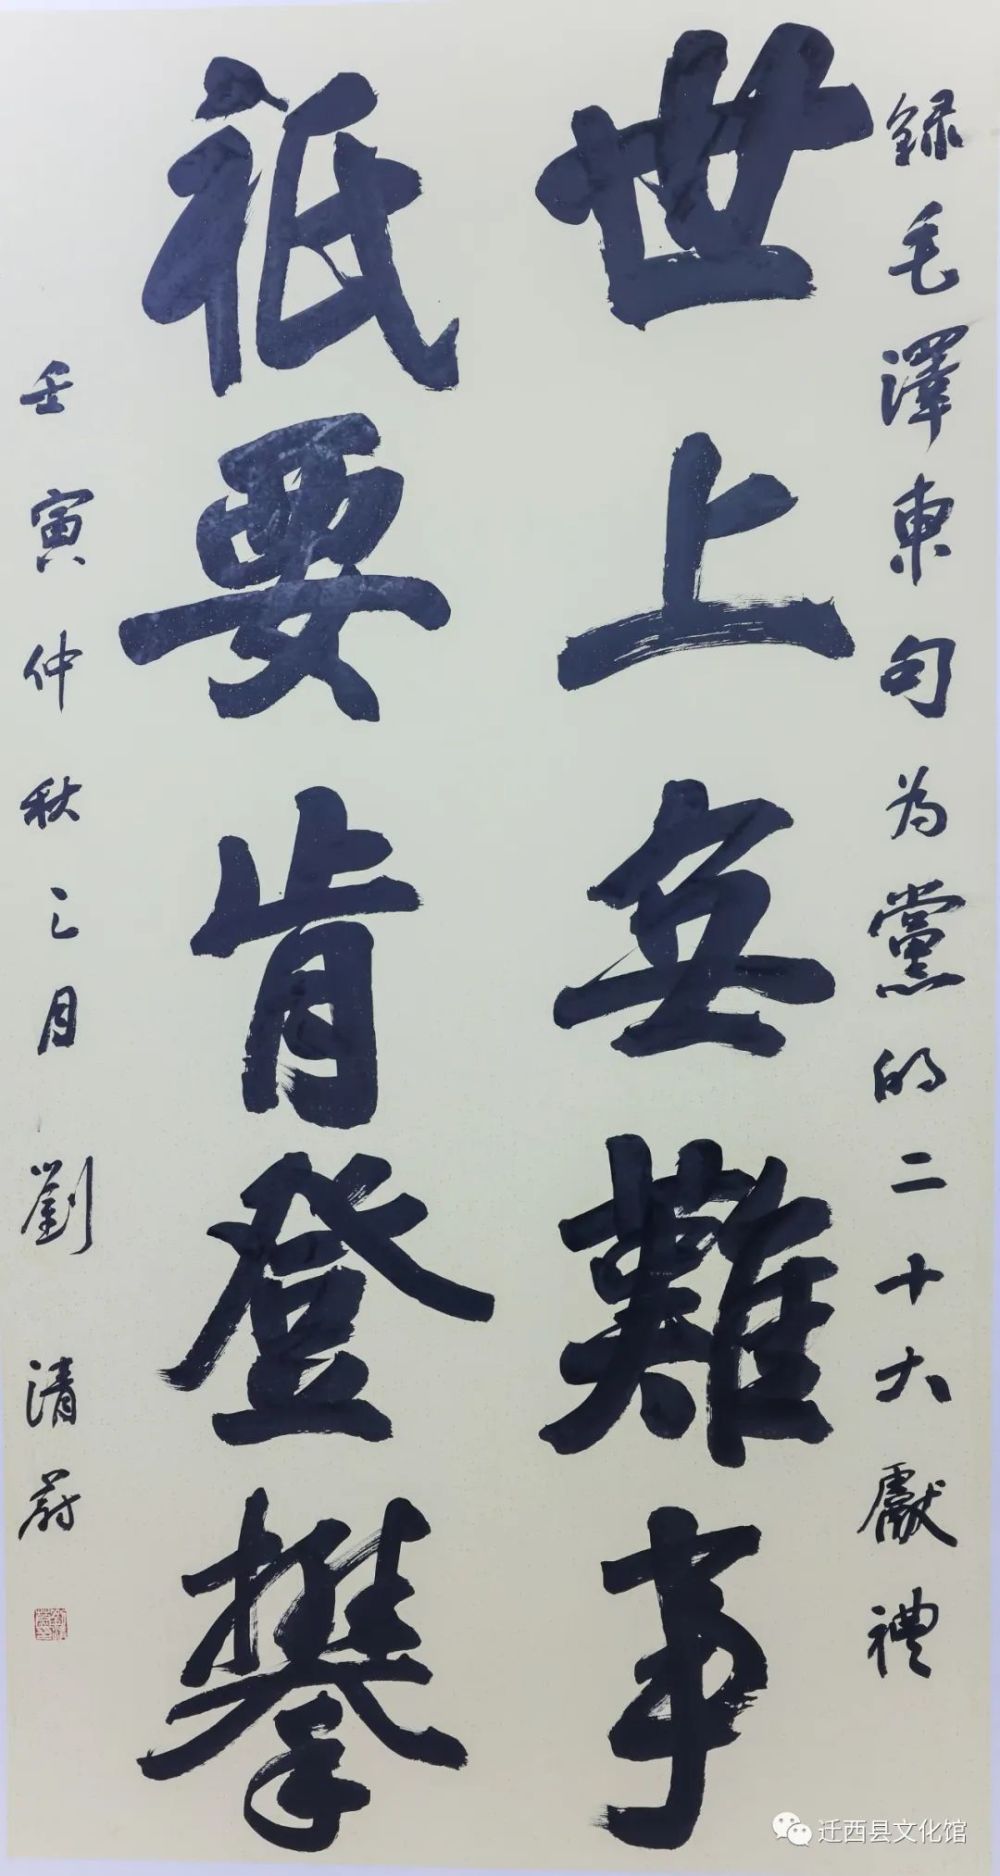 録毛澤東句为黨的二十大獻禮
世上無難事
祇要肯登攀
壬寅仲秋之月劉清蔚
迁西县文化馆